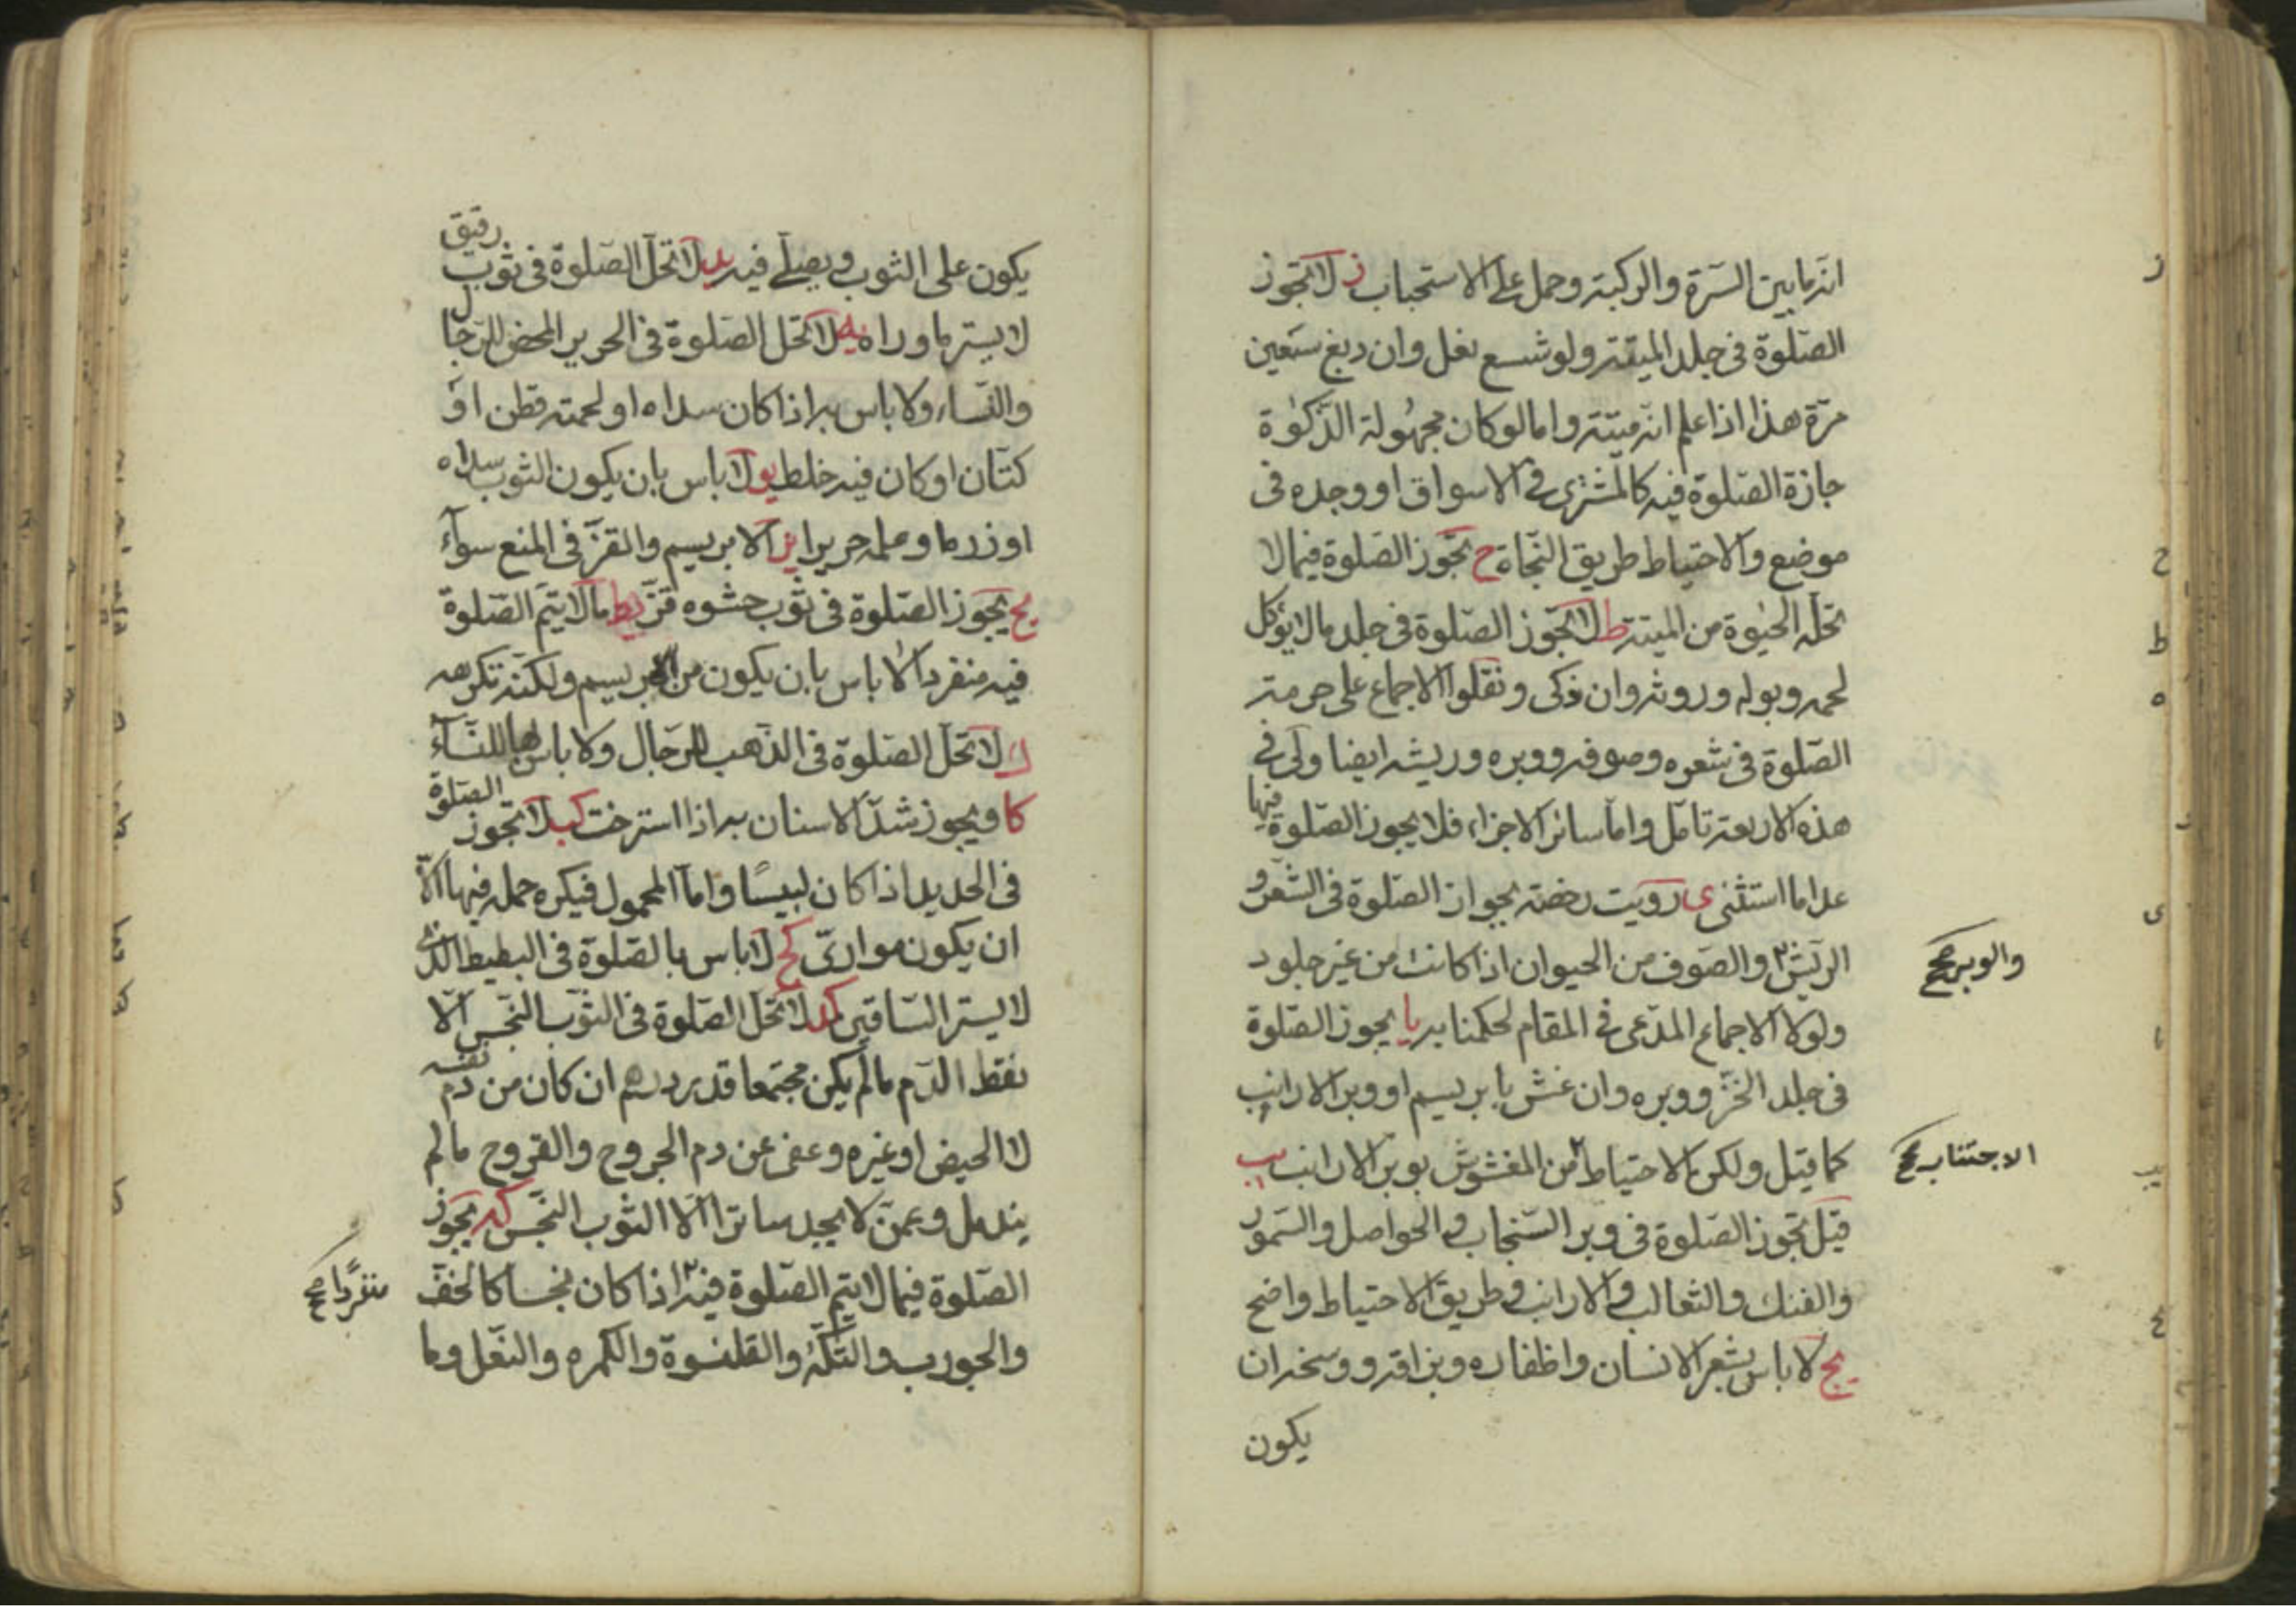 انه ما بين السرة والركبة وحمل على الاستحباب ز لا تجوز
الصلوة في جلد الميتة ولو شسع نعل وان دبغ سبعين
مرة هذا اذا علم انه ميتة واما لو كان مجهولة الذكوة
جازة الصلوة فيه كالمشترى في الاسواق او وجده في
موضع والاحتياط طريق النجاة ح تجوز الصلوة فيما لا
تحله الحيوة من الميتة ط لا تجوز الصلوة في جلد ما لا يؤكل
لحمه وبوله وروثه وان ذكى ونقلوا الاجماع على حرمته
الصلوة في شعره وصوفه ووبره وريشه ايضا ولى في
هذه الاربعة تامل واما سائر الاجزاء فلا يجوز الصلوة فيها
عدا ما استثنى ى رويت رخصة بجواز الصلوة في الشعر و
الريش والصوف من الحيوان اذا كانت من غير جلود
والوبر صح
ولولا الاجماع المدعى في المقام لحكمنا به يا يجوز الصلوة
في جلد الخز ووبره وان غش بابريسم او وبر الارانب
كما قيل ولكن الاحتياط من المغشوش بوبر الارانب يب
الاجتناب صح
قيل تجوز الصلوة في وبر السنجاب والحواصل والسمور
والفنك والثعالب والارانب وطريق الاحتياط واضح
يج لا باس بشعر الانسان واظفاره وبزاقه ووسخه ان
يكون
يكون على الثوب ويصلى فيه يد لا تحل الصلوة في ثوب رقيق
لا يستر ما وراه يه لا تحل الصلوة في الحرير المحض للرجال
والنساء ولا باس به اذا كان سداه او لحمته قطن او
كتان او كان فيه خلط يو لا باس بان يكون الثوب سداه
او زره او علمه حريرا يز الابريسم والقز في المنع سوآء
يح يجوز الصلوة في ثوب حشوه قز يط ما لا يتم الصلوة
فيه منفردا لا باس بان يكون من الابريسم ولكنه تكره
ك لا تحل الصلوة في الذهب للرجال ولا باس بها للنسآء
كا ويجوز شد الاسنان به اذا استرخت كب لا تجوز الصلوة
في الحديد اذا كان لبيسا واما المحمول فيكره حمله فيها الا
ان يكون موارى كج لا باس بالصلوة في البطيط الذى
لا يستر الساقين كد لا تحل الصلوة في الثوب النجس الا
نقط الدم ما لم يكن مجتمعا قدر درهم ان كان من دم نفسه
لا الحيض او غيره وعفى عن دم الجروح والقروح ما لم
يندمل وعمن لا يجد ساترا الا الثوب النجس كه يجوز
الصلوة فيما لا يتم الصلوة فيه اذا كان نجسا كالخف
منفردا صح
والجورب والتكة والقلنسوة والكمره والنعل وما
ز
ح
ط
ى
يا
يب